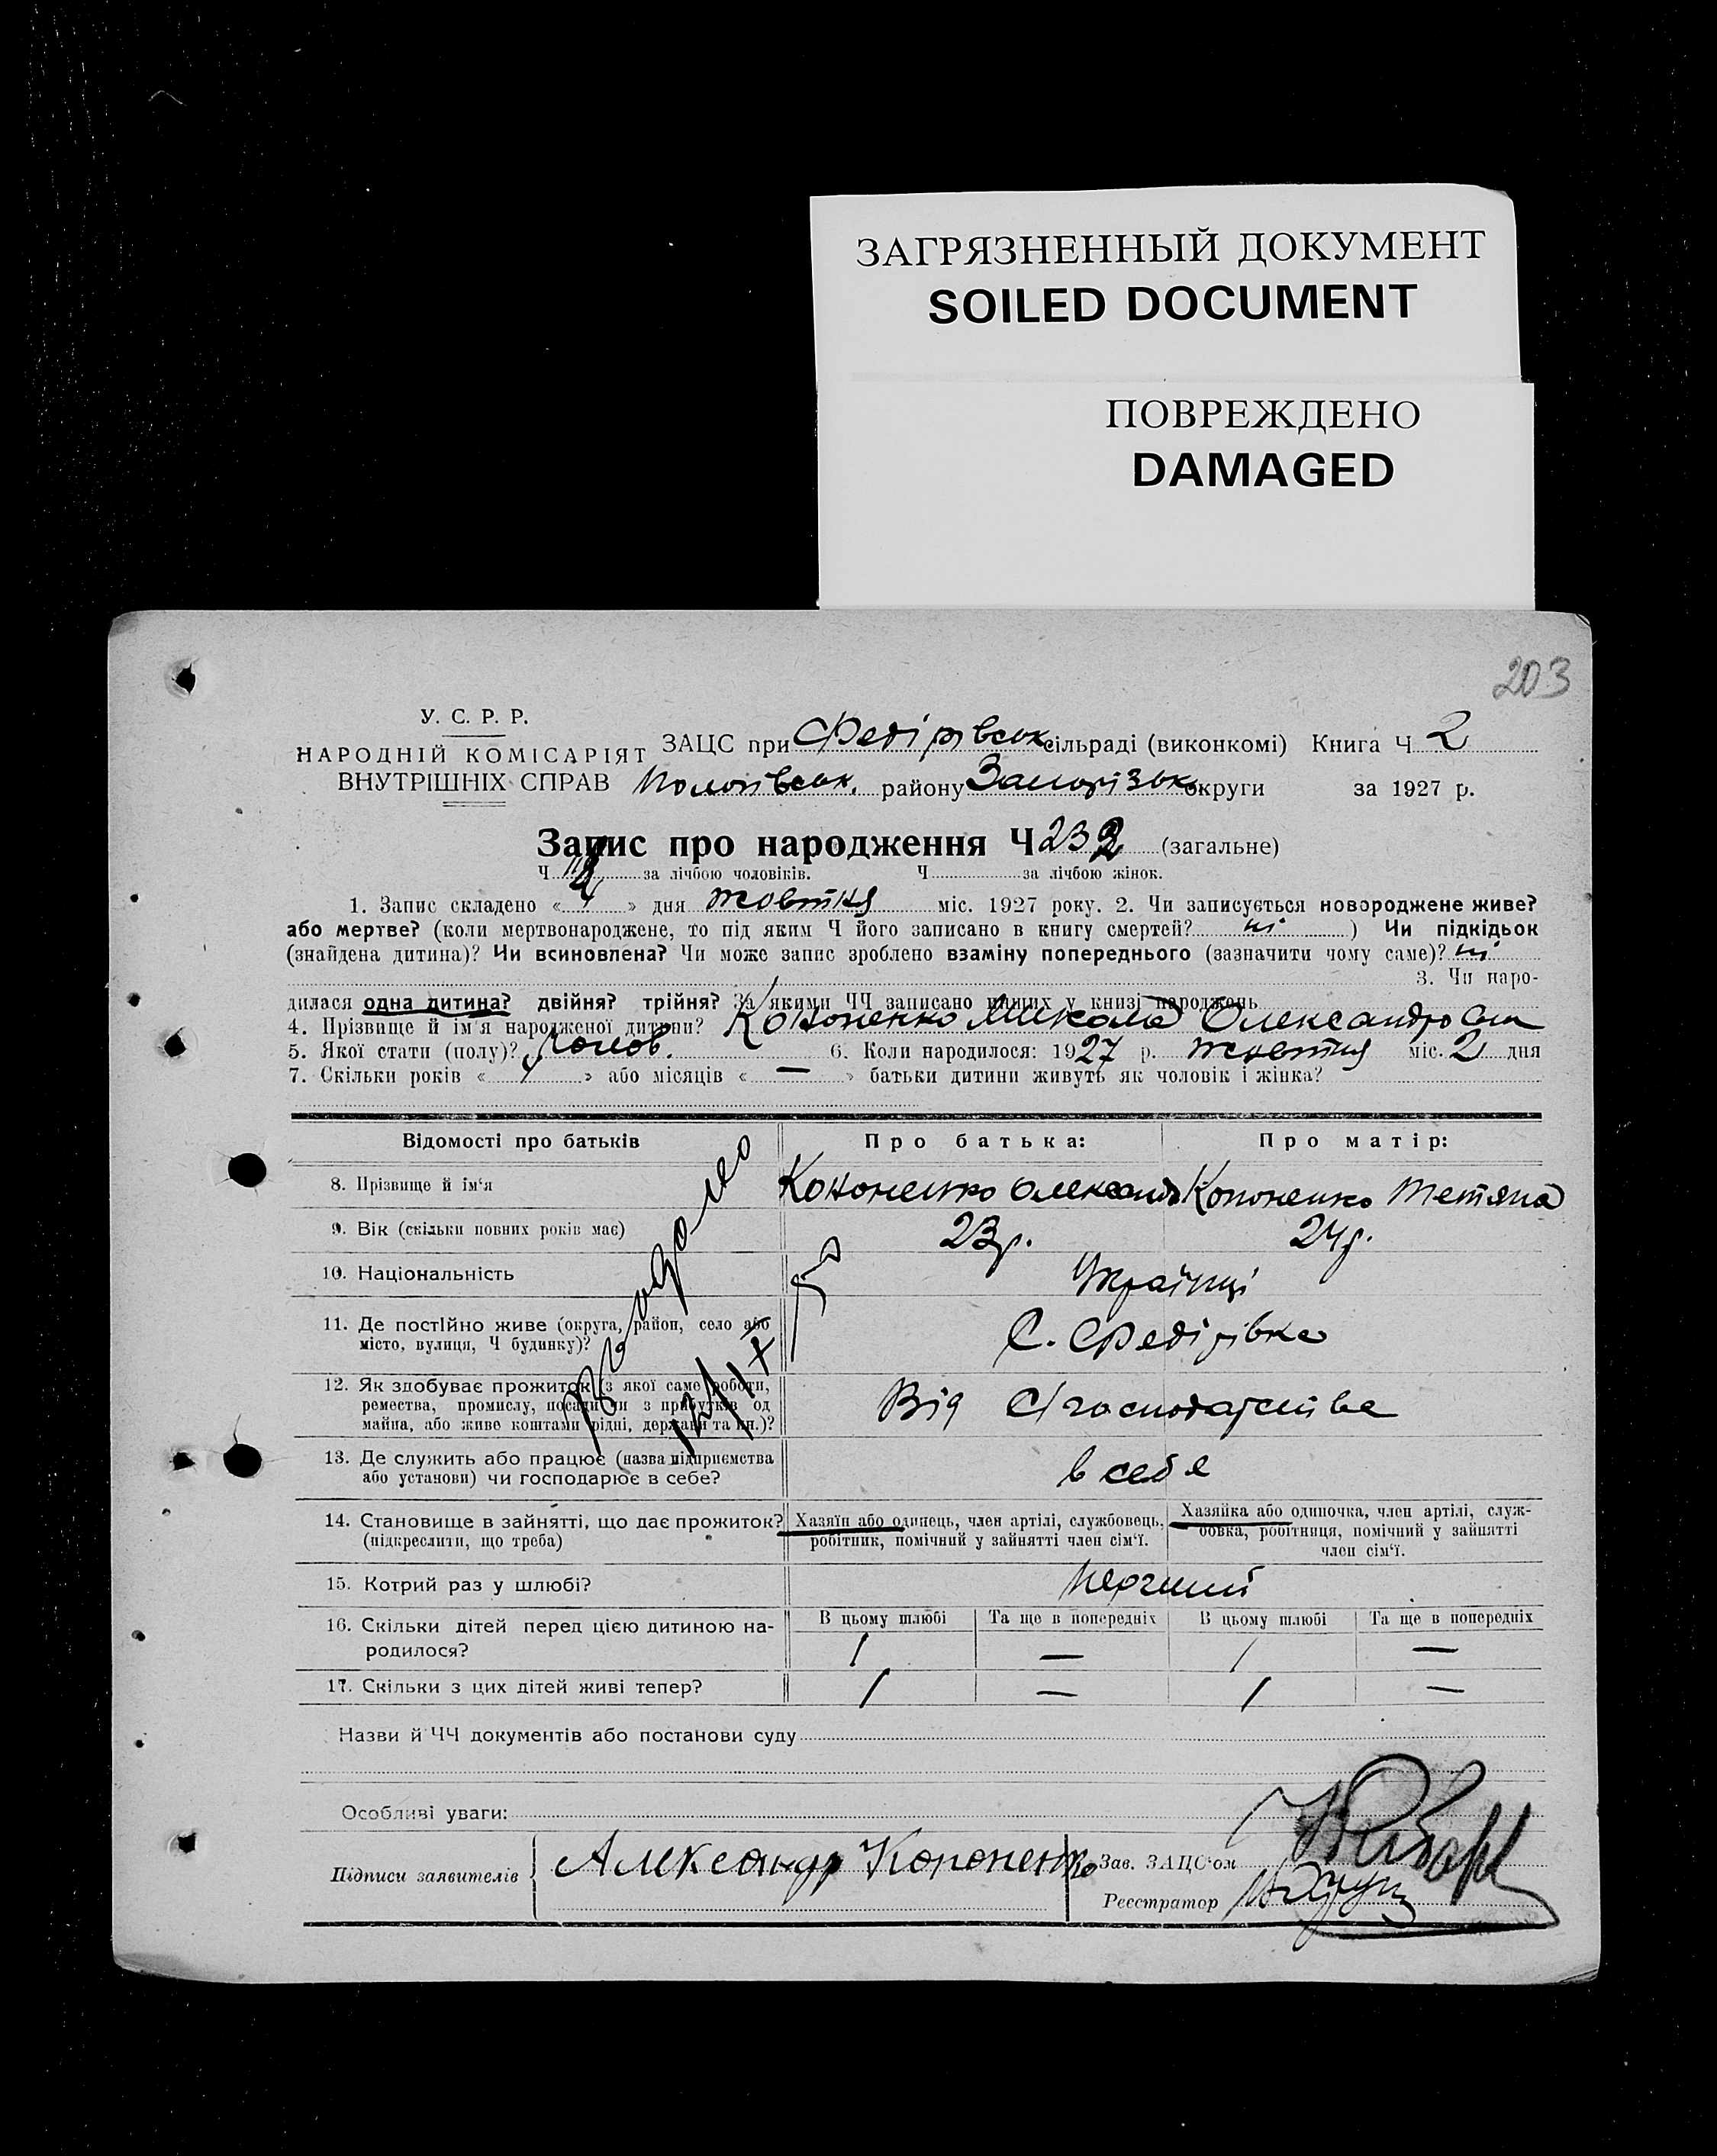 ЗАГРЯЗНЕННЫЙ ДОКУМЕНТ
SOILED DOCUMENT
ПОВРЕЖДЕНО
DAMAGED
203
У. С. Р. Р.
НАРОДНІЙ КОМІСАРІЯТ
ВНУТРІШНІХ СПРАВ
ЗАЦС при Федірівськ сільраді (виконкомі) Книга Ч 2
Пологівськ. району Запорізьк округи за 1927 р.
Запис про народження Ч 232 (загальне)
Ч за лічбою чоловіків. Ч за лічбою жінок.
1. Запис складено « 4 » дня жовтня міс. 1927 року. 2. Чи записується новороджене живе?
або мертве? (коли мертвонароджене, то під яким Ч його записано в книгу смертей? ні ) Чи підкідьок
(знайдена дитина)? Чи всиновлена? Чи може запис зроблено взаміну попереднього (зазначити чому саме)? ні
3. Чи наро-
дилася одна дитина? двійня? трійня? За якими ЧЧ записано инших у книзі народжень
4. Прізвище й ім'я народженої дитини? Кононенко Микола Олександров
5. Якої стати (полу)? чолов. 6. Коли народилося: 1927 р. жовтня міс. 2 дня
7. Скільки років « 4 » або місяців « — » батьки дитини живуть як чоловік і жінка?
Відомості про батьків Про батька: Про матір:
8. Прізвище й ім'я Кононенко Олександ Кононенко Тетяна
9. Вік (скільки повних років має) 23 р. 24 р.
10. Національність Українці
11. Де постійно живе (округа, район, село або
місто, вулиця, Ч будинку)? С. Федірівка
12. Як здобуває прожиток (з якої саме роботи,
ремества, промислу, посади чи з прибутків од
майна, або живе коштами рідні, держави та ин.)? Від С/господарства
13. Де служить або працює (назва підприємства
або установи) чи господарює в себе? в себе
14. Становище в зайнятті, що дає прожиток?
(підкреслити, що треба)
Хазяїн або одинець, член артілі, службовець,
робітник, помічний у зайнятті член сім'ї.
Хазяйка або одиночка, член артілі, служ-
бовка, робітниця, помічний у зайнятті
член сім'ї.
15. Котрий раз у шлюбі? перший
16. Скільки дітей перед цією дитиною на-
родилося?
В цьому шлюбі Та ще в попередніх В цьому шлюбі Та ще в попередніх
1 — 1 —
17. Скільки з цих дітей живі тепер? 1 — 1 —
Назви й ЧЧ документів або постанови суду
Особливі уваги:
Підписи заявителів Александр Кононенко
Зав. ЗАЦС'ом
Реєстратор